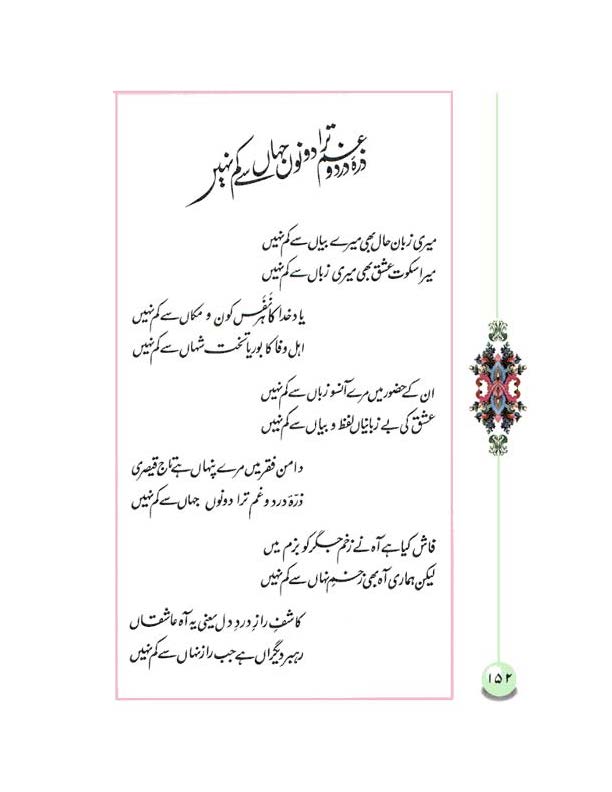 ذرۂ درد و غم ترا دونوں جہاں سے کم نہیں
میری زبان حال بھی میرے بیاں سے کم نہیں
میرا سکوت عشق بھی میری زباں سے کم نہیں
یاد خدا کا ہر نَفَس کون و مکاں سے کم نہیں
اہل وفا کا بوریا تخت شہاں سے کم نہیں
ان کے حضور میں مرے آنسو زباں سے کم نہیں
عشق کی بے زبانیاں لفظ و بیاں سے کم نہیں
دامن فقر میں مرے پنہاں ہے تاج قیصری
ذرّۂ درد و غم ترا دونوں جہاں سے کم نہیں
فاش کیا ہے آہ نے زخم جگر کو بزم میں
لیکن ہماری آہ بھی زخمِ نہاں سے کم نہیں
کاشفِ رازِ دردِ دل یعنی یہ آہ عاشقاں
رہبر دیگراں ہے جب راز نہاں سے کم نہیں
۱۵۲